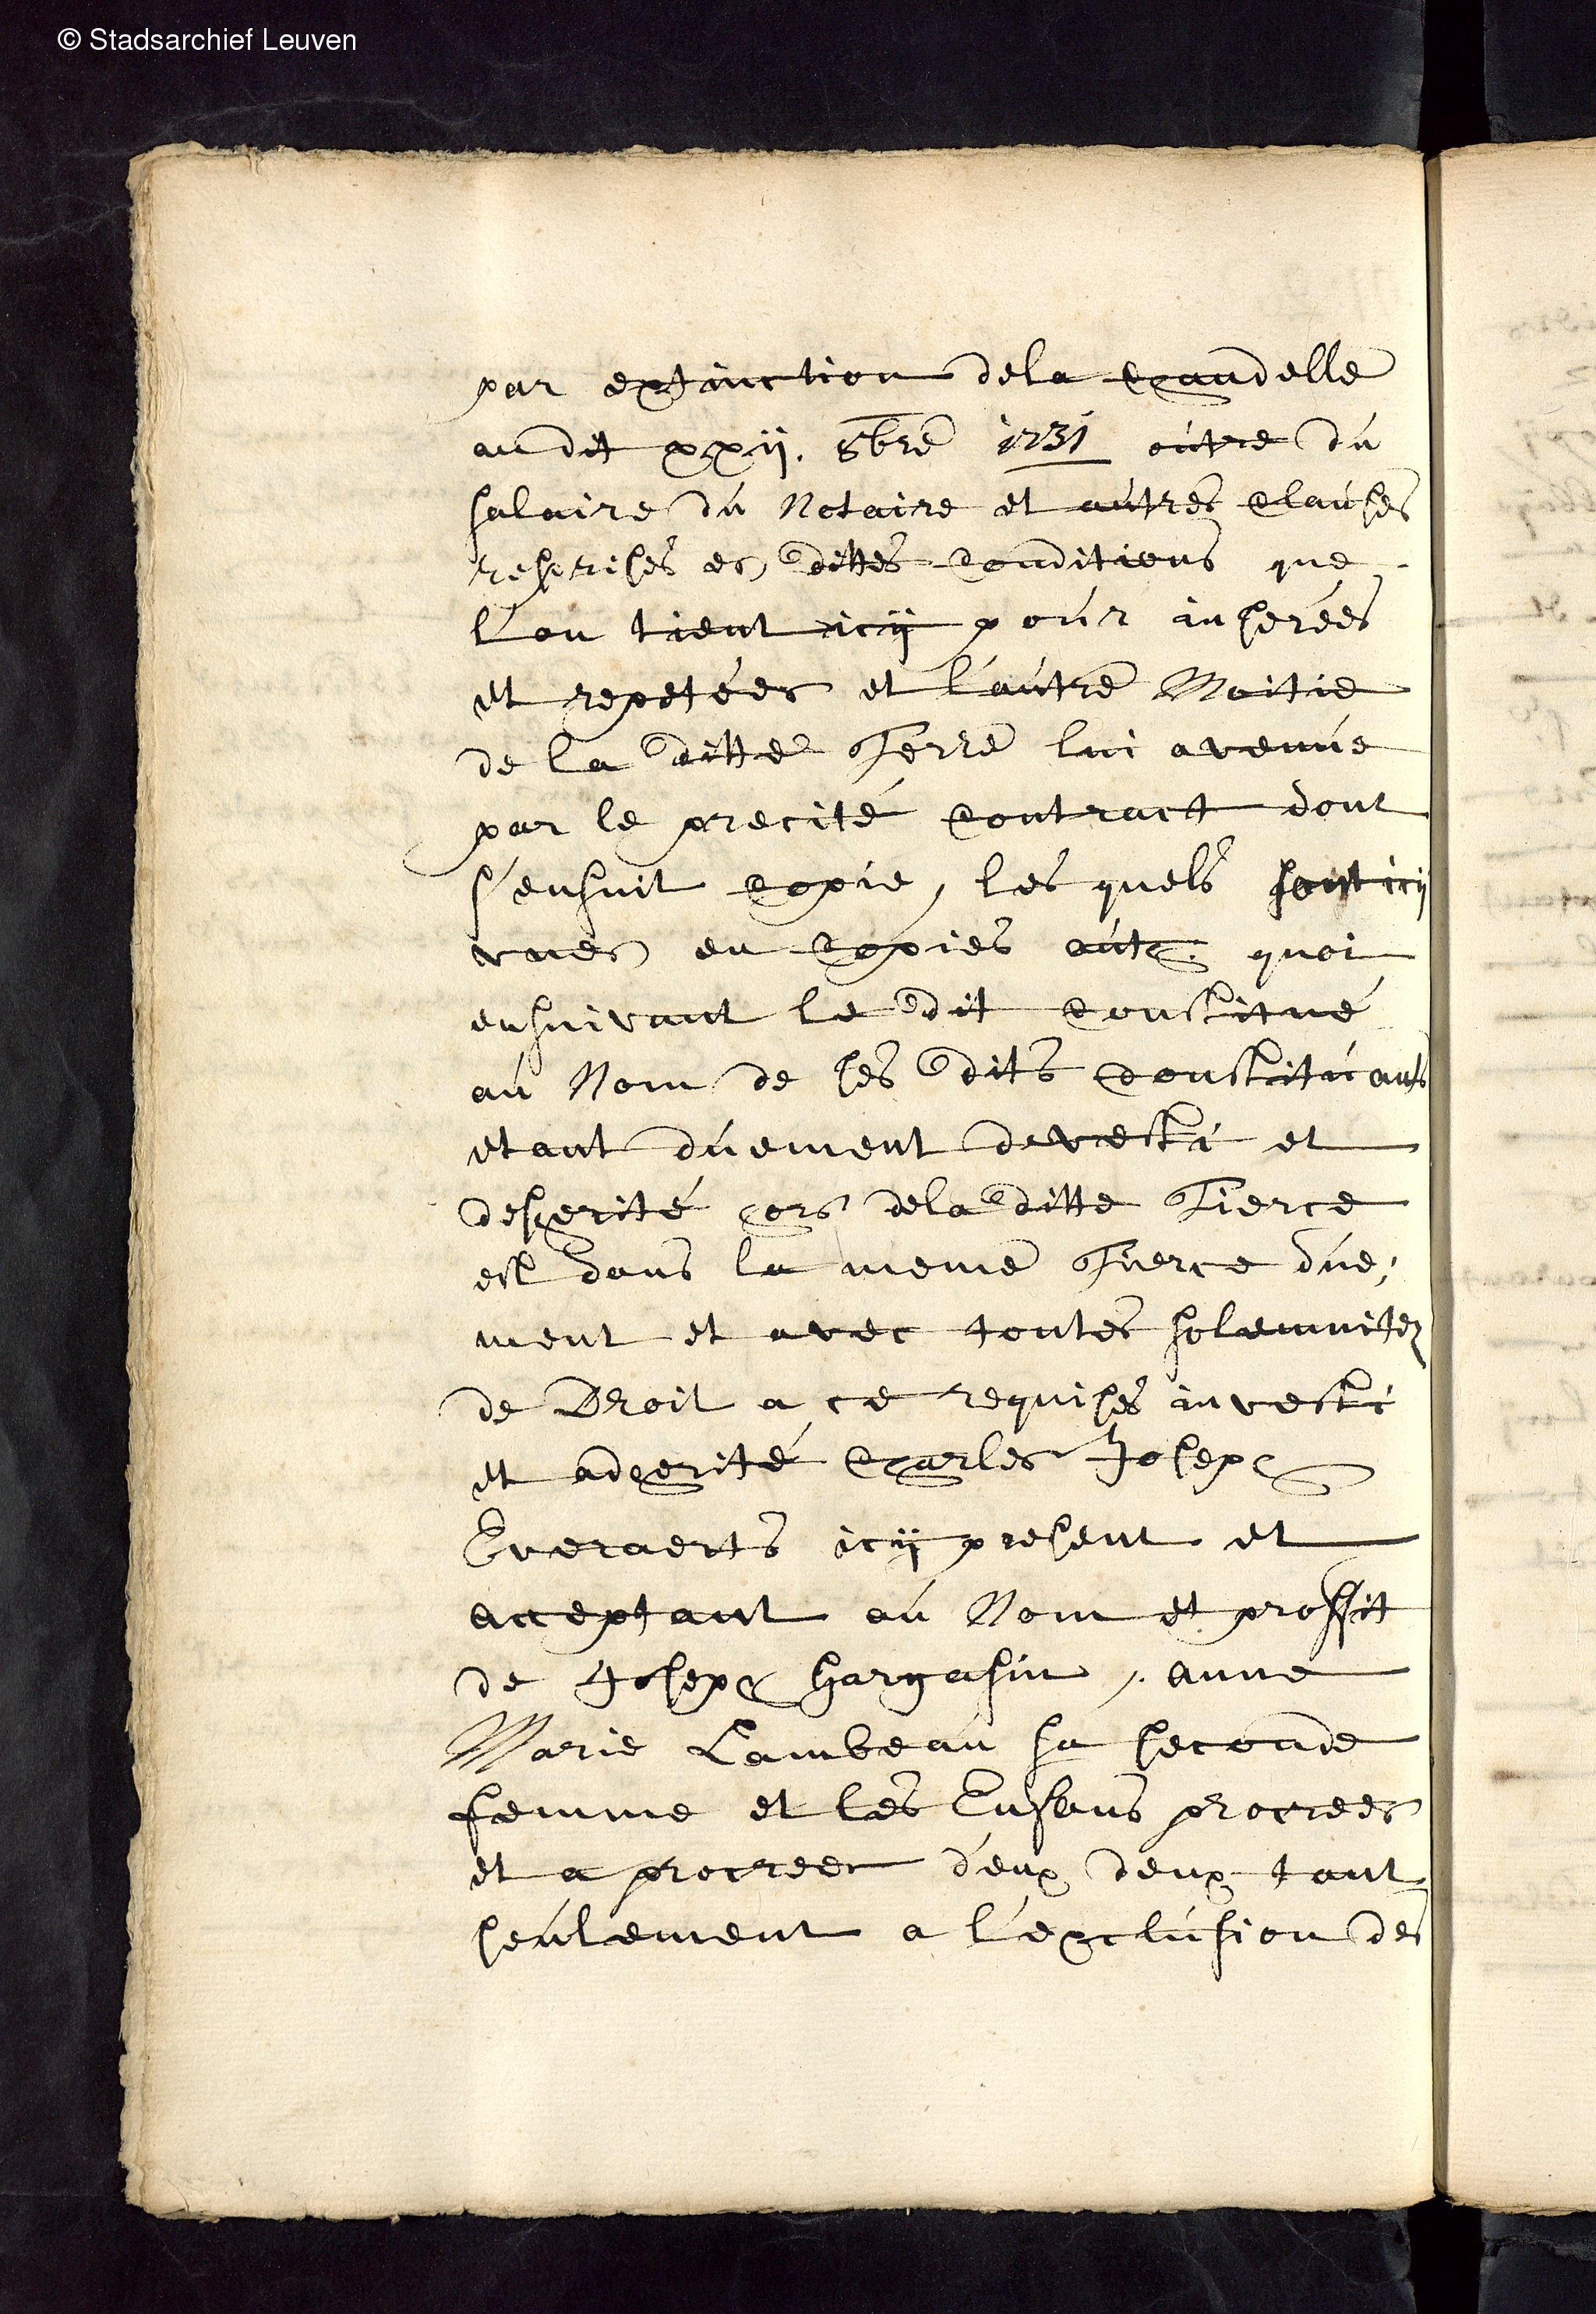 © Stadsarchief Leuven
par extinction dela chandelle
audit xxij. 8bre 1731 outre du
salaire du Notaire et autres clauses
reprises es dittes conditions que
l'on tient icij pour inserées
et repetées et l'autre Moitie
de la ditte Terre lui avenue
par le precité contract dont
s'ensuit copie, les quels sont icij
vues en copies auth. quoi
ensuivant le dit constitué
au Nom de ses dits constituants
etant duement devesti et
desherité hors dela ditte Tierce
est dans la meme Tierce due,
ment et avec toutes solemnitez
de Droit a ce requises investi
et adherité Charles Joseph
Everaerts icij present et
acceptant au Nom et proffit
de Joseph Hargasin, anne
Marie Lambeau sa seconde
femme et les Enfans procrees
et a procreer d'eux deux tant
seulement a l'exclusion des